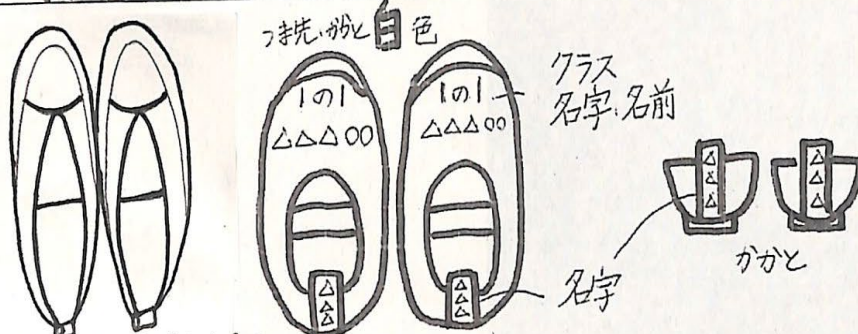 つま先、かかと白色
1の1
△△△○○
1の1
△△△○○
クラス
名字、名前
△△△
△△△
名字
△△△
△△△
かかと